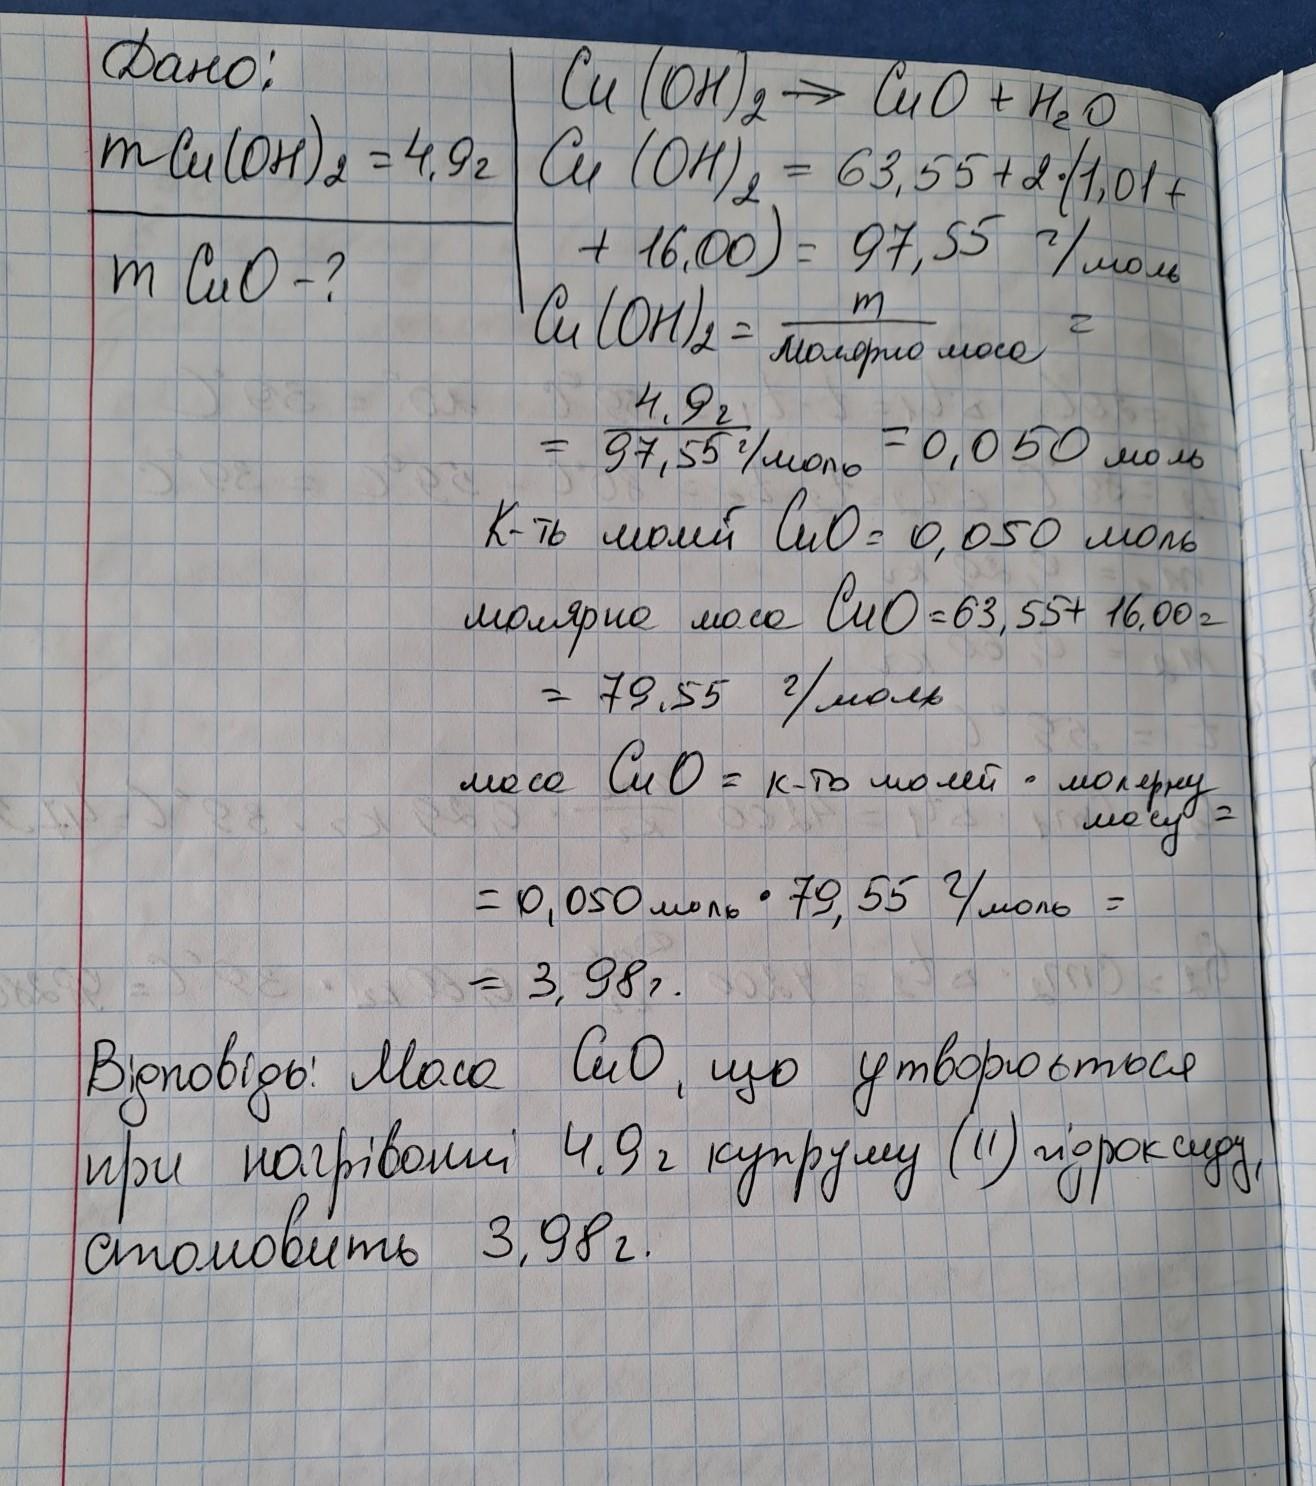 Дано:
m Cu(OH)2 = 4,9г
m CuO - ?
Cu(OH)2 → CuO + H2O
Cu(OH)2 = 63,55 + 2·(1,01 +
+ 16,00) = 97,55 г/моль
Cu(OH)2 = m / молярна маса =
= 4,9г / 97,55 г/моль = 0,050 моль
К-ть молей CuO = 0,050 моль
молярна маса CuO = 63,55 + 16,00 =
= 79,55 г/моль
маса CuO = к-ть молей · молярну
масу =
= 0,050 моль · 79,55 г/моль =
= 3,98г.
Відповідь: Маса CuO, що утворюється
при нагріванні 4,9г купруму (II) гідроксиду,
становить 3,98г.